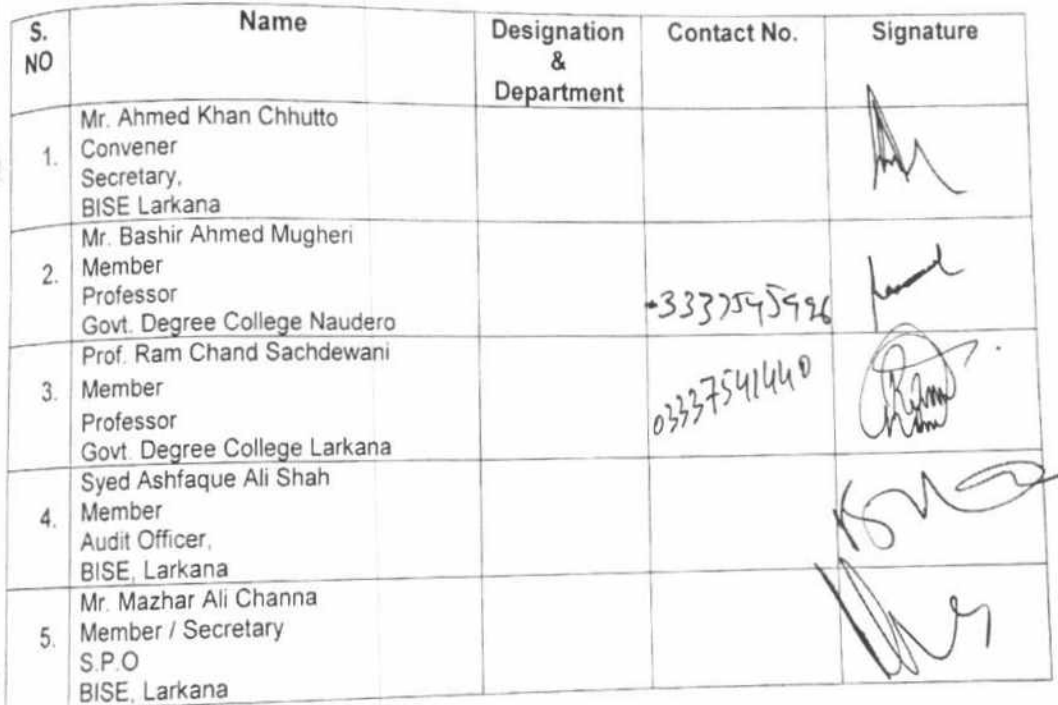 S. NO
Name
Designation & Department
Contact No.
Signature
1.
Mr. Ahmed Khan Chhutto
Convener
Secretary,
BISE Larkana
2.
Mr. Bashir Ahmed Mugheri
Member
Professor
Govt. Degree College Naudero
3.
Prof. Ram Chand Sachdewani
Member
Professor
Govt. Degree College Larkana
03337541440
4.
Syed Ashfaque Ali Shah
Member
Audit Officer,
BISE, Larkana
5.
Mr. Mazhar Ali Channa
Member / Secretary
S.P.O
BISE, Larkana